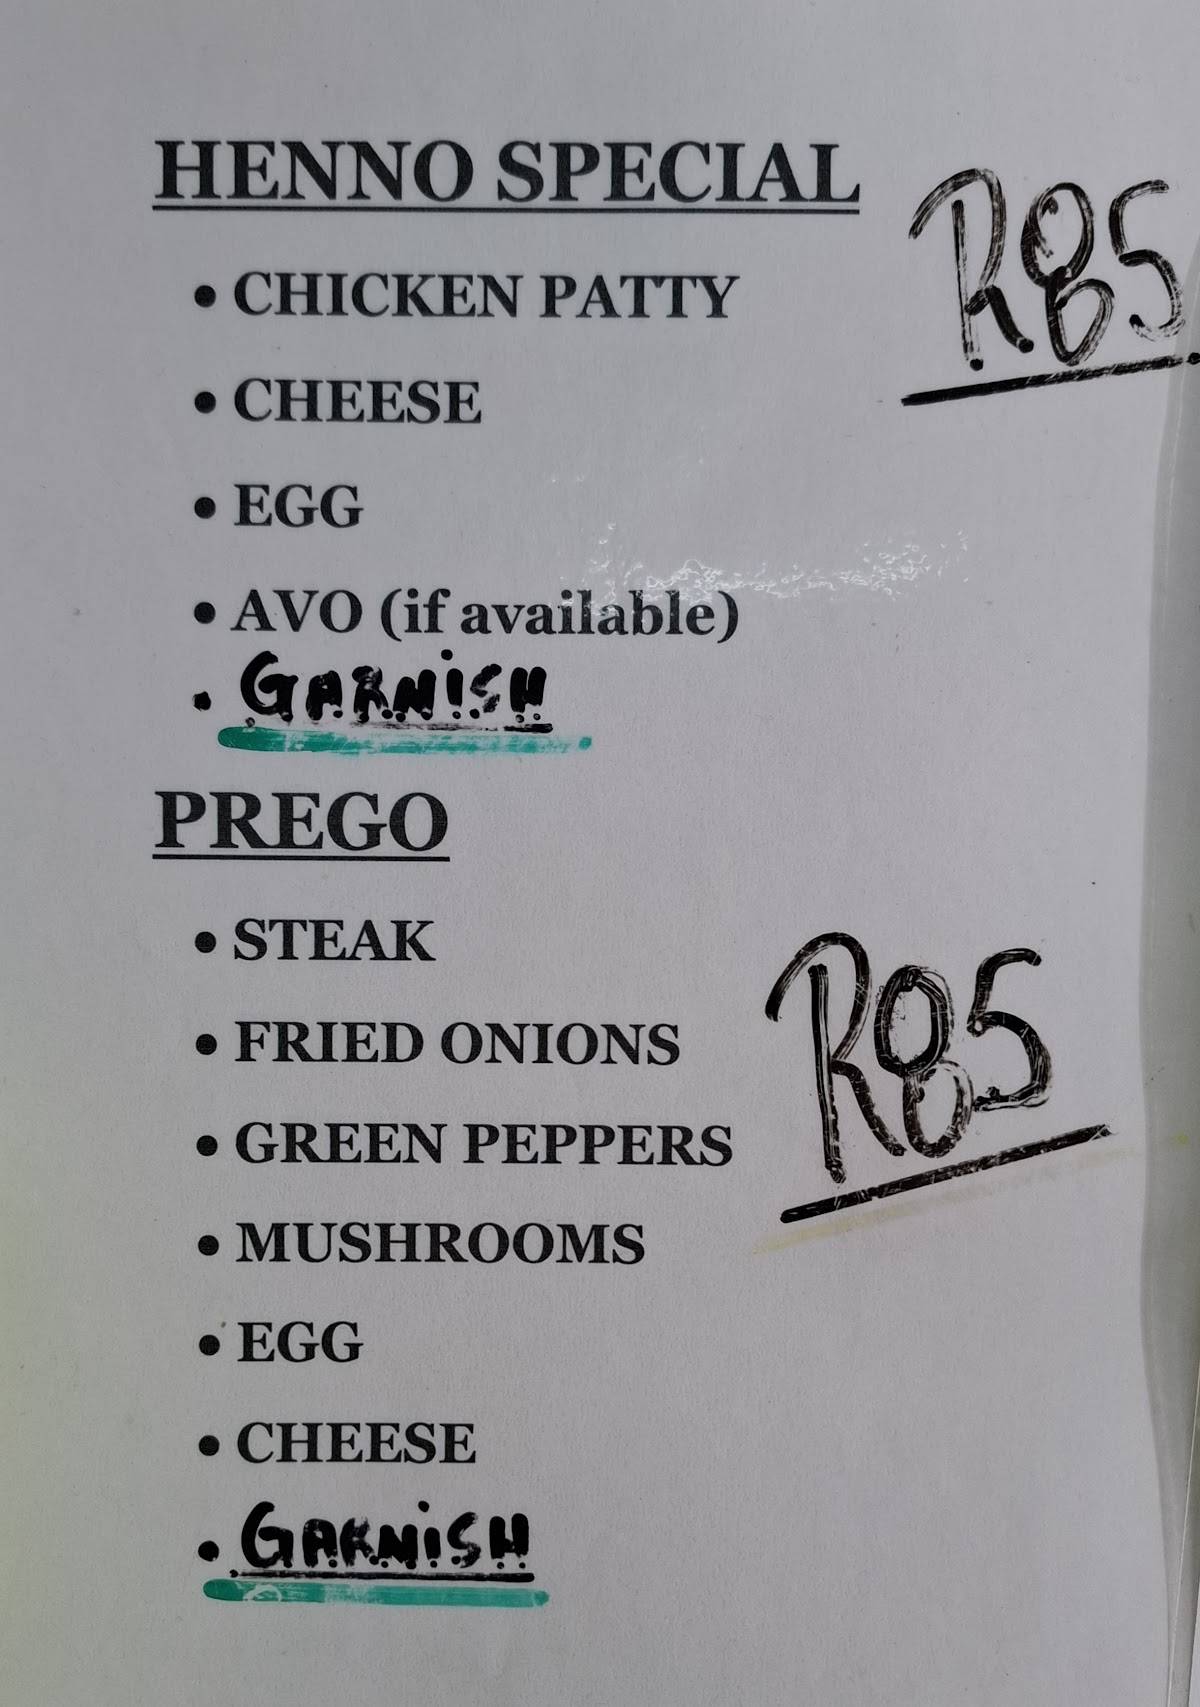 HENNO SPECIAL
R85
• CHICKEN PATTY
• CHEESE
• EGG
• AVO (if available)
• GARNiSH
PREGO
• STEAK
R85
• FRIED ONIONS
• GREEN PEPPERS
• MUSHROOMS
• EGG
• CHEESE
• GARNiSH